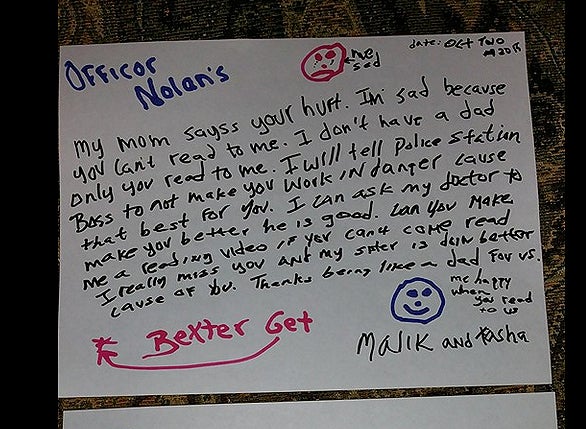 Officor
Nolan's
me
sad
date: Oct Two
My mom sayss your hurt. I'm sad because
you can't read to me. I don't have a dad
only you read to me. I will tell Police Station
Boss to not make you work in danger cause
that best for you. I can ask my doctor to
make you better he is good. Can you make
me a reading video if you can't come read
I really miss you and my sister is doin better
cause of you. Thanks being like a dad for us.
me happy
when
you read
to us
Bexter Get
Malik and Kasha